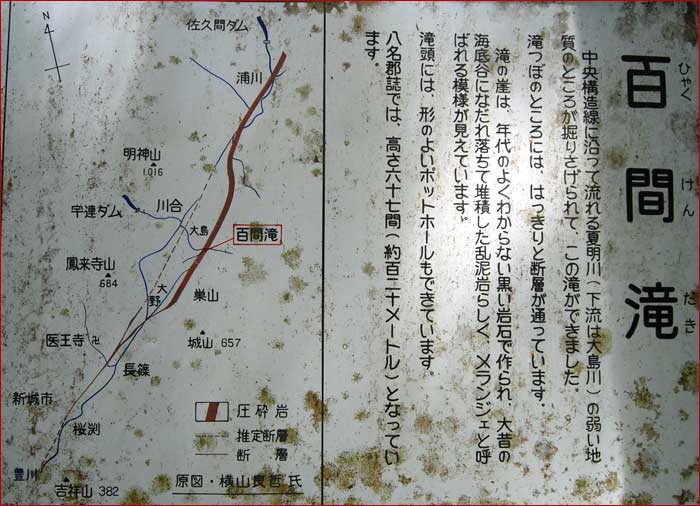 百間滝
ひゃく けん たき
中央構造線に沿って流れる夏明川（下流は大島川）の弱い地
質のところが掘りさげられて、この滝ができました。
滝つぼのところには、はっきりと断層が通っています。
滝の崖は、年代のよくわからない黒い岩石で作られ、大昔の
海底谷になだれ落ちて堆積した乱泥岩らしく、メランジェと呼
ばれる模様が見えています。
滝頭には、形のよいポットホールもできています。
八名郡誌では、高さ六十七間（約百二十メートル）となってい
ます。
N
佐久間ダム
浦川
明神山
1.016
川合
宇連ダム
大島
百間滝
鳳来寺山
684
大野
巣山
医王寺 卍
城山 657
長篠
新城市
桜渕
豊川
吉祥山 382
圧砕岩
推定断層
断層
原図・横山良哲氏